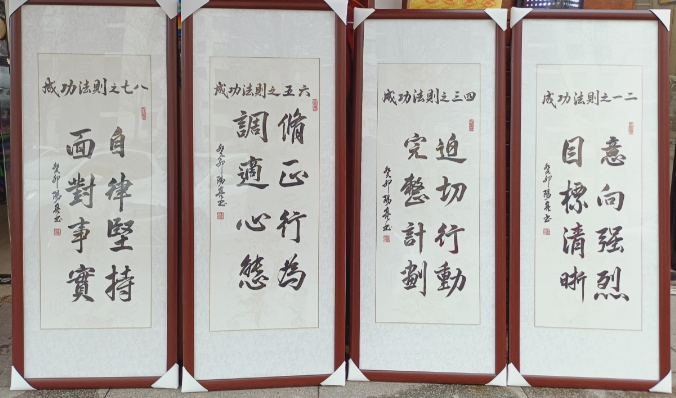 成功法則之一二
意向强烈
目標清晰
癸卯
成功法則之三四
迫切行動
完整計劃
癸卯
成功法則之五六
脩正行為
調適心態
癸卯
成功法則之七八
自律堅持
面對事實
癸卯